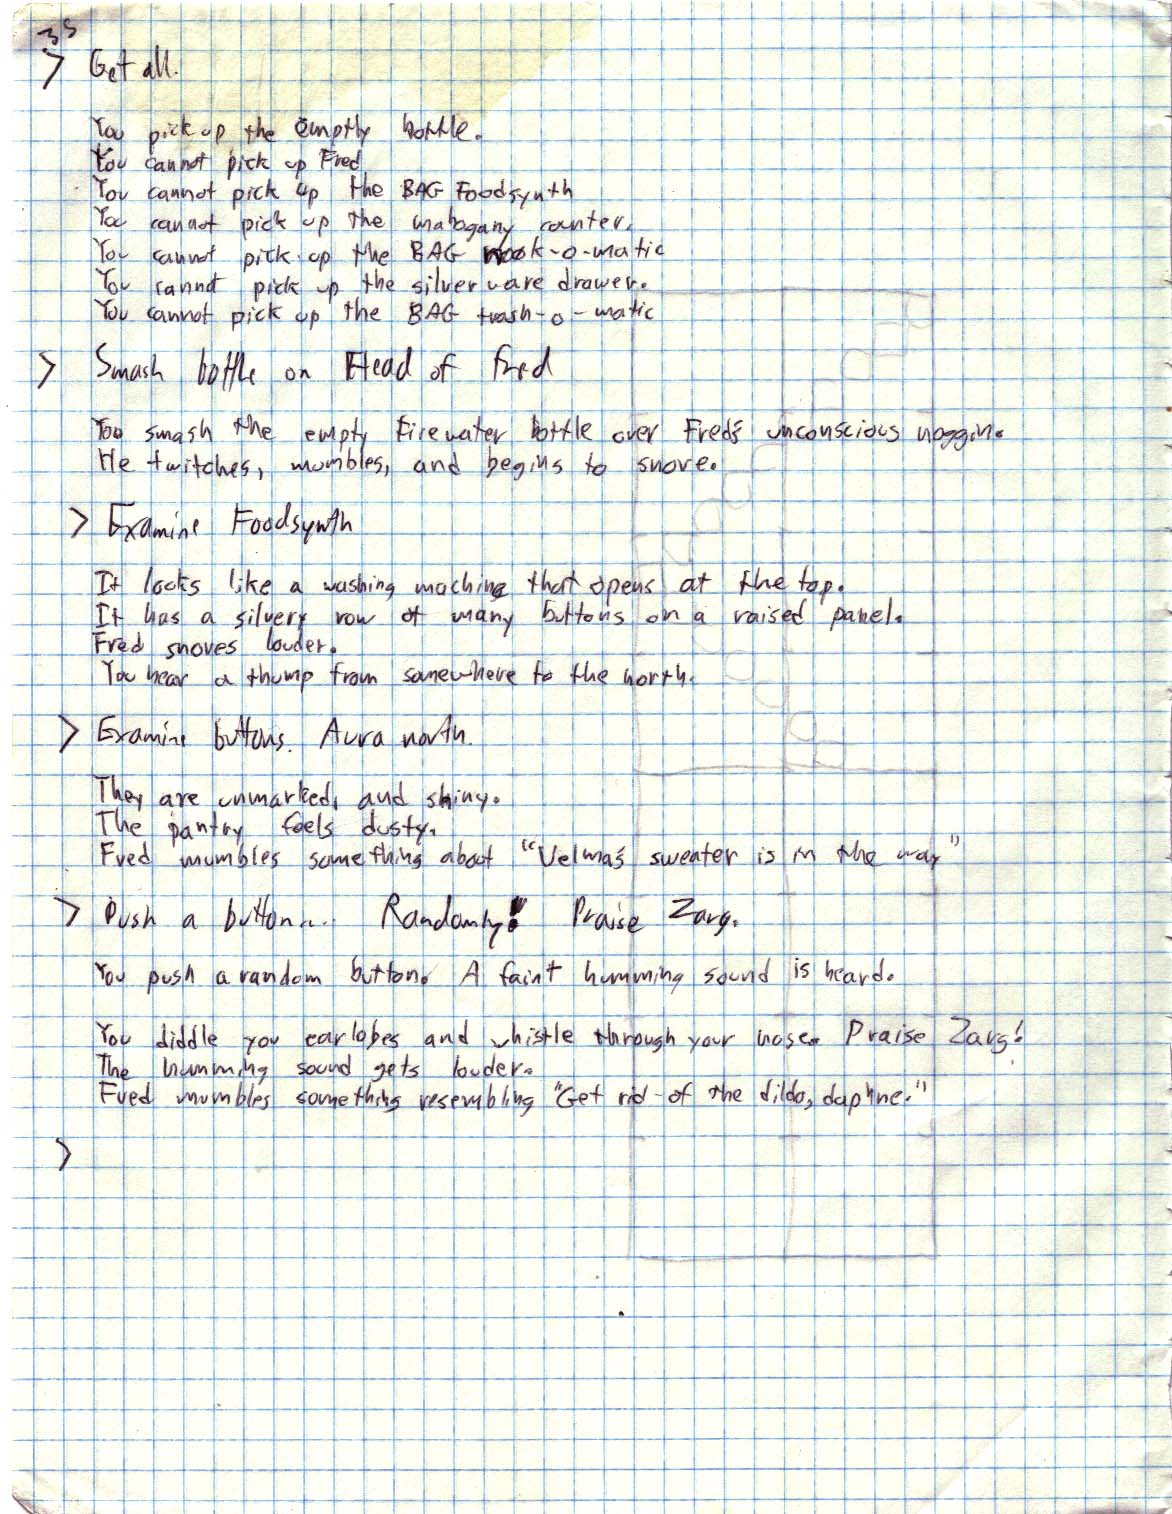 35
> Get all.
You pick up the emptly bottle.
You cannot pick up Fred
You cannot pick up the BAG Foodsynth
You cannot pick up the mahogany counter.
You cannot pick up the BAG nook-o-matic
You cannot pick up the silverware drawer.
You cannot pick up the BAG trash-o-matic
> Smash bottle on Head of Fred
You smash the empty Firewater bottle over Fred's unconscious noggin.
He twitches, mumbles, and begins to snore.
> Examine Foodsynth
It looks like a washing machine that opens at the top.
It has a silvery row of many buttons on a raised panel.
Fred snores louder.
You hear a thump from somewhere to the north.
> Examine buttons. Aura north.
They are unmarked, and shiny.
The pantry feels dusty.
Fred mumbles something about "Velma's sweater is in the way"
> Push a button... Randomly! Praise Zarg.
You push a random button. A faint humming sound is heard.
You diddle you earlobes and whistle through your nose. Praise Zarg!
The humming sound gets louder.
Fred mumbles something resembling "Get rid of the dildo, daphne."
>